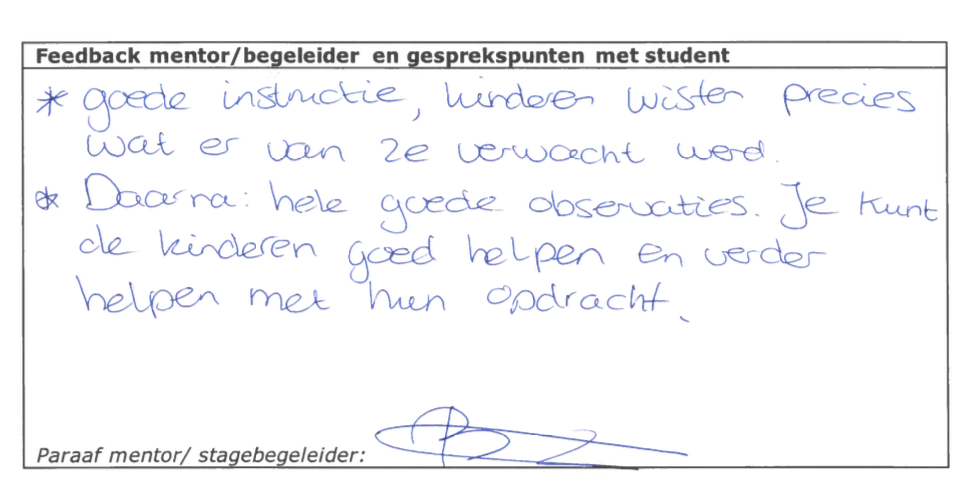 Feedback mentor/begeleider en gesprekspunten met student
* goede instructie, kinderen wisten precies
wat er van ze verwacht werd.
* Daarna: hele goede observaties. Je kunt
de kinderen goed helpen en verder
helpen met hun opdracht.
Paraaf mentor/ stagebegeleider: